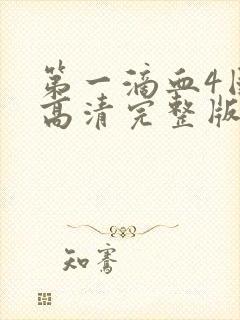 第一滴血4
高清完整版
知骞